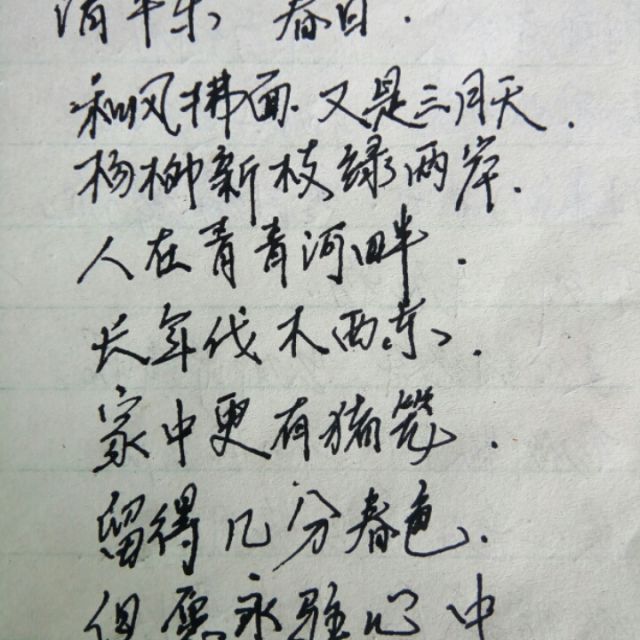 清平乐 春日.
和风拂面.又是三月天.
杨柳新枝绿两岸.
人在青青河畔.
长年伐木西东.
家中更有猪笼.
留得几分春色.
但愿永驻心中